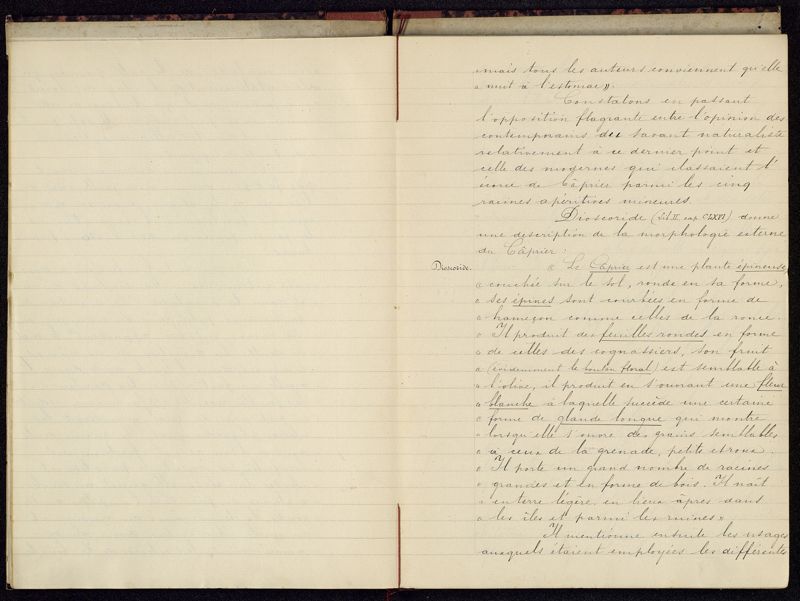 mais tous les auteurs conviennent qu'elle
« nuit à l'estomac ».
Constatons en passant
l'opposition flagrante entre l'opinion des
contemporains du savant naturaliste
relativement à ce dernier point et
celle des modernes qui classaient l'
écorce de Câprier parmi les cinq
racines apéritives mineures.
Dioscoride (Lib II cap CLXVI) donne
une description de la morphologie externe
du Câprier :
Dioscoride.
« Le Câprier est une plante épineuse,
« couchée sur le sol, ronde en sa forme,
« ses épines sont courbées en forme de
« hameçon comme celles de la ronce.
« Il produit des feuilles rondes en forme
« de celles des cognassiers, son fruit
« (évidemment le bouton floral) est semblable à
« l'olive, il produit en s'ouvrant une fleur
« blanche à laquelle succède une certaine
« forme de glande longue qui montre
« lorsqu'elle s'ouvre des grains semblables
« à ceux de la grenade, petits et roux.
« Il porte un grand nombre de racines
« grandes et en forme de bois. Il naît
« en terre légère, en lieux âpres dans
« les îles et parmi les ruines »
Il mentionne ensuite les usages
auxquels étaient employées les différentes